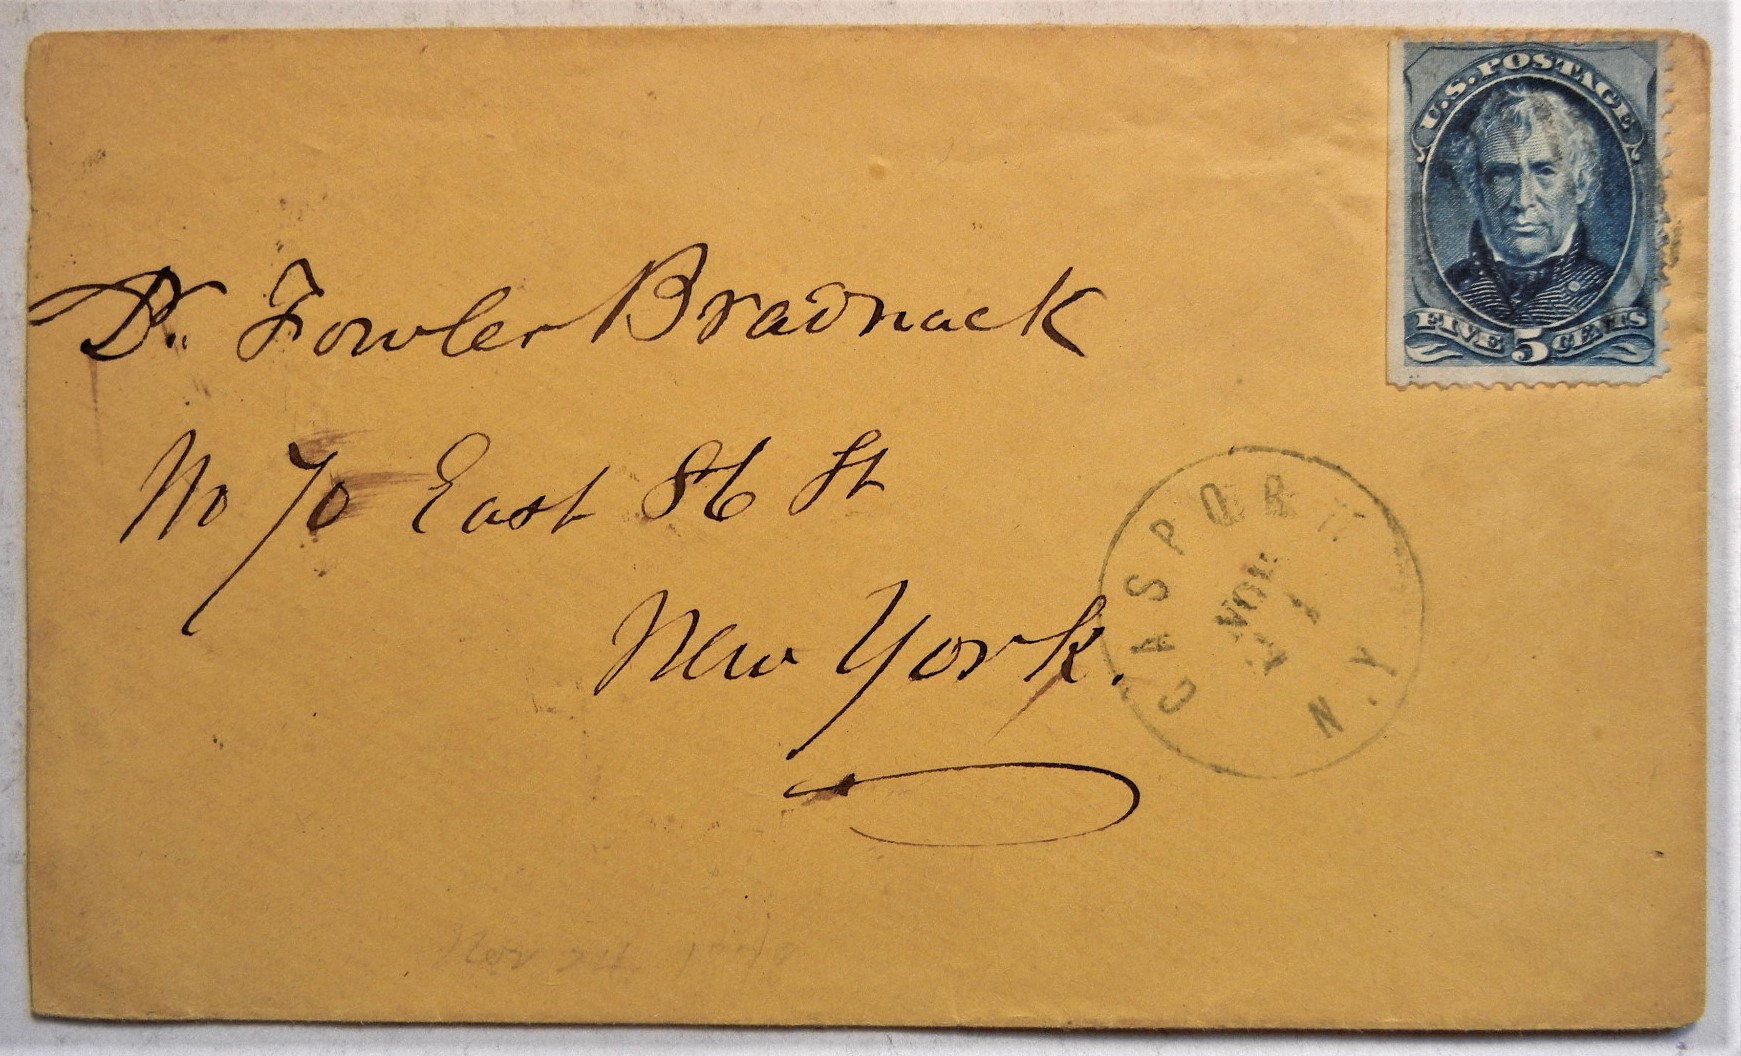 U.S. POSTAGE
FIVE 5 CENTS
Dr. Fowler Bradnack
No 70 East 86 St
New York.
GASPORT N.Y.